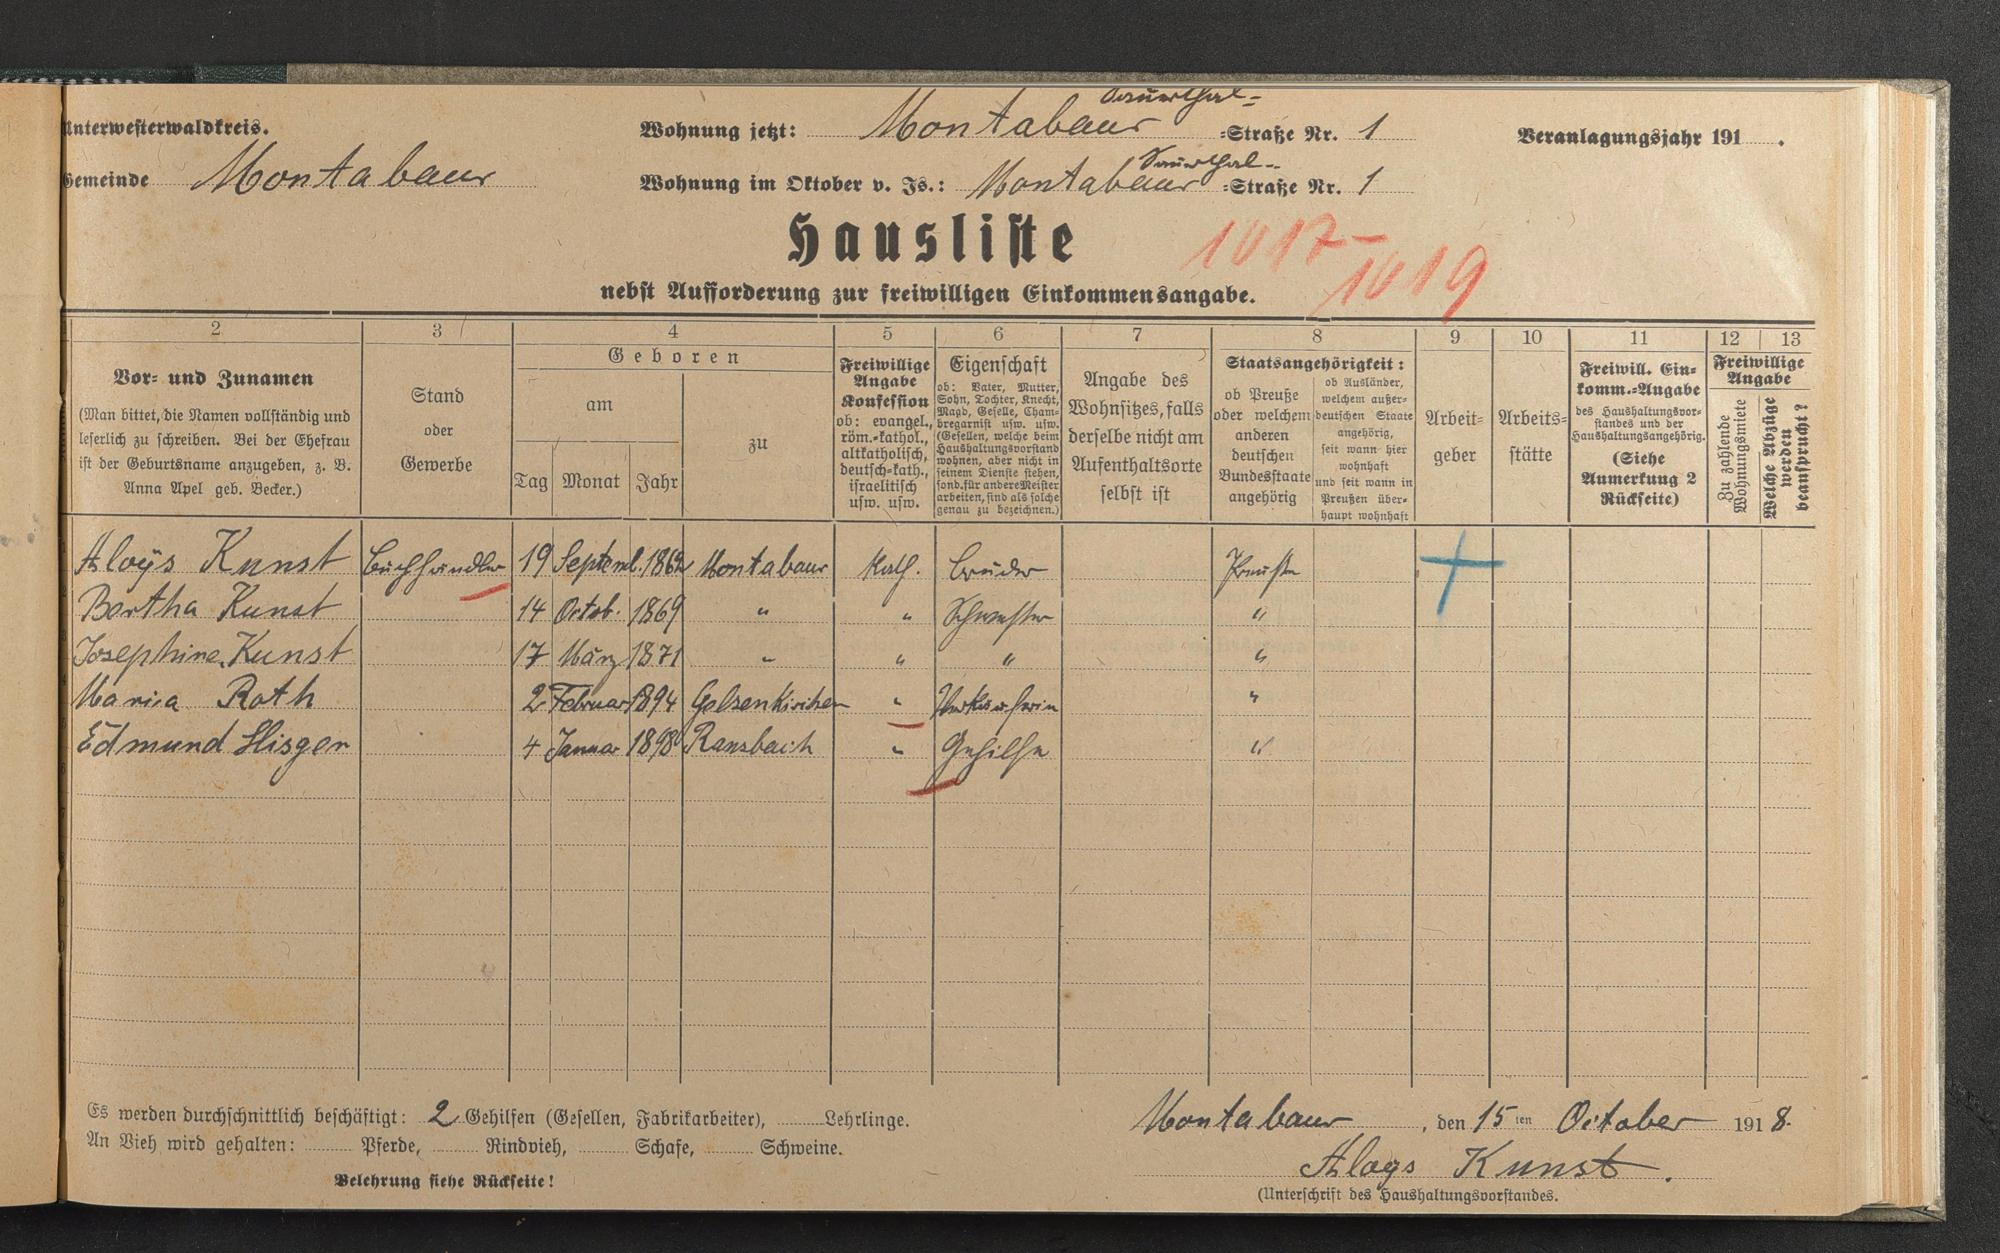 Unterwesterwaldkreis.
Gemeinde Montabaur
Wohnung jetzt: Montabaur Sauerthal- =Straße Nr. 1
Wohnung im Oktober v. Js.: Montabaur Sauerthal- =Straße Nr. 1
Veranlagungsjahr 191 .
Hausliste
1017-
1019
nebst Aufforderung zur freiwilligen Einkommensangabe.
2 3 4 5 6 7 8 9 10 11 12 13
Vor- und Zunamen
(Man bittet, die Namen vollständig und
leserlich zu schreiben. Bei der Ehefrau
ist der Geburtsname anzugeben, z. B.
Anna Apel geb. Becker.)
Stand
oder
Gewerbe
Geboren
am
Tag Monat Jahr
zu
Freiwillige
Angabe
Konfession
ob: evangel.,
röm.-kathol.,
altkatholisch,
deutsch-kath.,
israelitisch
usw. usw.
Eigenschaft
ob: Vater, Mutter,
Sohn, Tochter, Knecht,
Magd, Geselle, Cham-
bregarnist usw. usw.
(Gesellen, welche beim
Haushaltungsvorstand
wohnen, aber nicht in
seinem Dienste stehen,
sond. für andere Meister
arbeiten, sind als solche
genau zu bezeichnen.)
Angabe des
Wohnsitzes, falls
derselbe nicht am
Aufenthaltsorte
selbst ist
Staatsangehörigkeit:
ob Preuße
oder welchem
anderen
deutschen
Bundesstaate
angehörig
ob Ausländer,
welchem außer-
deutschen Staate
angehörig,
seit wann hier
wohnhaft
und seit wann in
Preußen über-
haupt wohnhaft
Arbeit-
geber
Arbeits-
stätte
Freiwill. Ein-
komm.-Angabe
des Haushaltungsvor-
standes und der
Haushaltungsangehörig.
(Siehe
Anmerkung 2
Rückseite)
Freiwillige
Angabe
Zu zahlende
Wohnungsmiete
Welche Abzüge
werden
beansprucht?
Aloÿs Kunst Buchhändler 19 Septemb. 1862 Montabaur Kath. Bruder Preuße
Bertha Kunst 14 Octob. 1869 " " Schwester "
Josephine Kunst 17 März 1871 " " " "
Maria Roth 2 Februar 1894 Gelsenkirchen " Verkäuferin "
Edmund Hisgen 4 Januar 1898 Ransbach " Gehilfe "
Es werden durchschnittlich beschäftigt: 2 Gehilfen (Gesellen, Fabrikarbeiter), Lehrlinge.
An Vieh wird gehalten: Pferde, Rindvieh, Schafe, Schweine.
Belehrung siehe Rückseite!
Montabaur , den 15 ten October 1918.
Aloys Kunst.
(Unterschrift des Haushaltungsvorstandes.